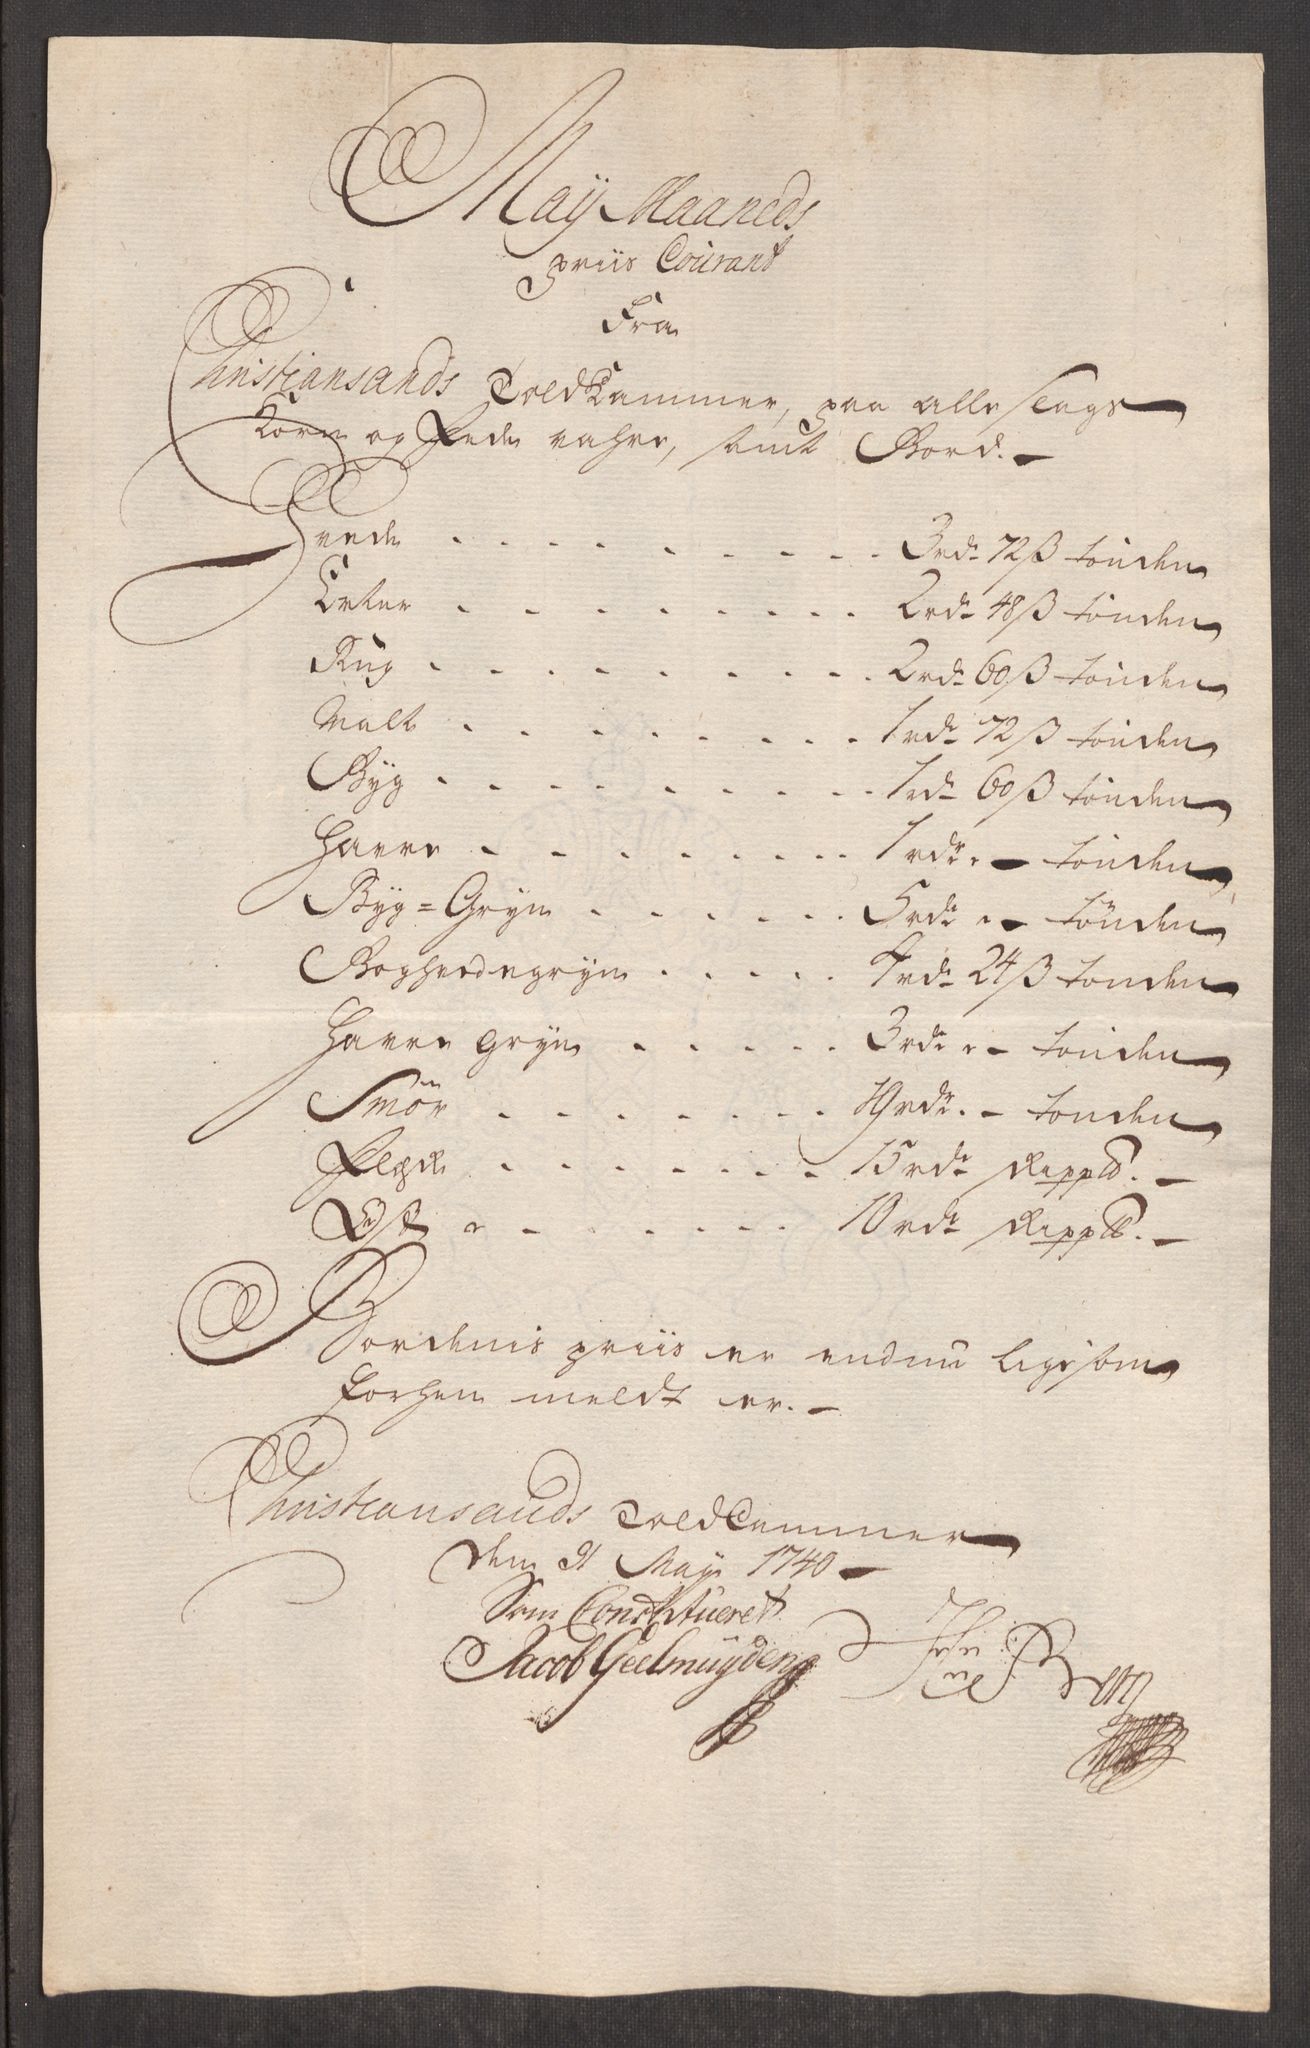 May Maaneds
priis Courant
Fra
Christiansands Toldkammer, paa alle slags
Korn og Fede vahre, samt Bord. -
Hvede - - - - - - - - - 3rdr 72ß tönden
Erter - - - - - - - - - 2rdr 48ß tönden
Rug - - - - - - - - - - 2rdr 60ß tönden
Malt - - - - - - - - - 1rdr 72ß tönden
Byg - - - - - - - - - - 1rdr 60ß tönden
Havre - - - - - - - - 1rdr " - tönden
Byg=Gryn - - - - - - 5rdr " - tönden
Boghvedegryn - - - - 4rdr 24ß tönden
Havre gryn - - - - - 3rdr " - tönden
Smör - - - - - - - - 19rdr. - tönden
Flesk - - - - - - - 15rdr skipp℔. -
Ost - - - - - - - 10rdr skipp℔. -
Bordenis priis er endnu ligesom
forhen meldt er. -
Christiansands Toldkammer
den 31 May 1740 -
Som Constitueret
Jacob Geelmuyden